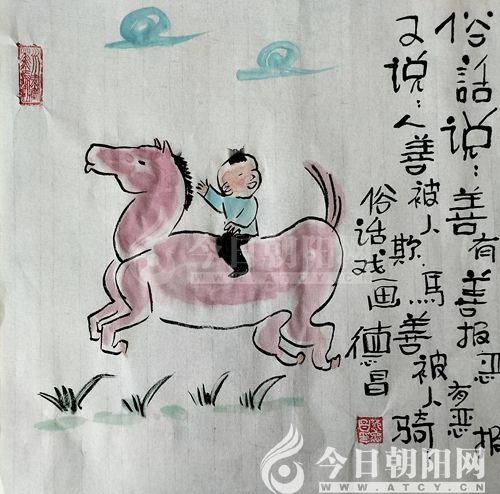 俗話说：善有善报恶有恶报
又说：人善被人欺馬善被人骑
俗话戏画德昌
今日朝阳网
今日朝阳网
WWW.ATCY.CN